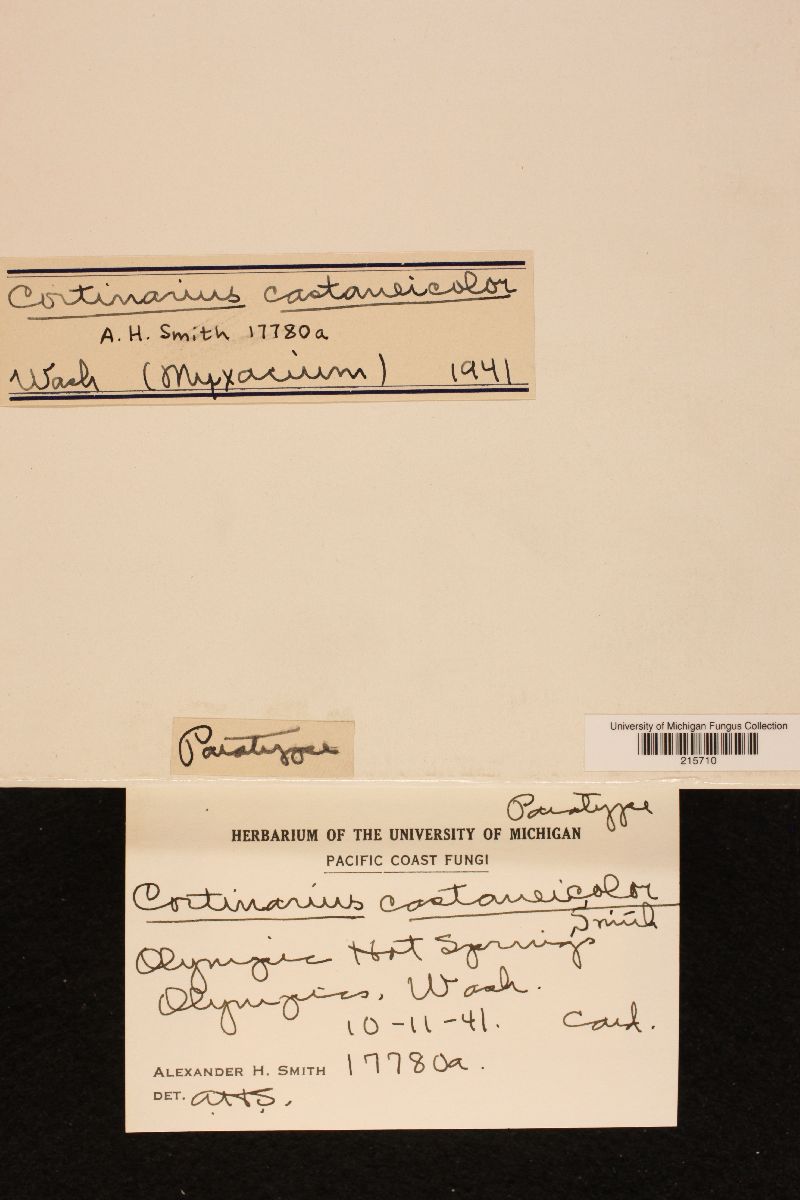 Cortinarius castaneicolor
A. H. Smith 17780a
Wash (Myxacium) 1941
Paratype
University of Michigan Fungus Collection
215710
Paratype
HERBARIUM OF THE UNIVERSITY OF MICHIGAN
PACIFIC COAST FUNGI
Cortinarius castaneicolor
Smith
Olympic Hot Springs
Olympics, Wash.
10-11-41. Card.
ALEXANDER H. SMITH 17780a.
DET. AHS.